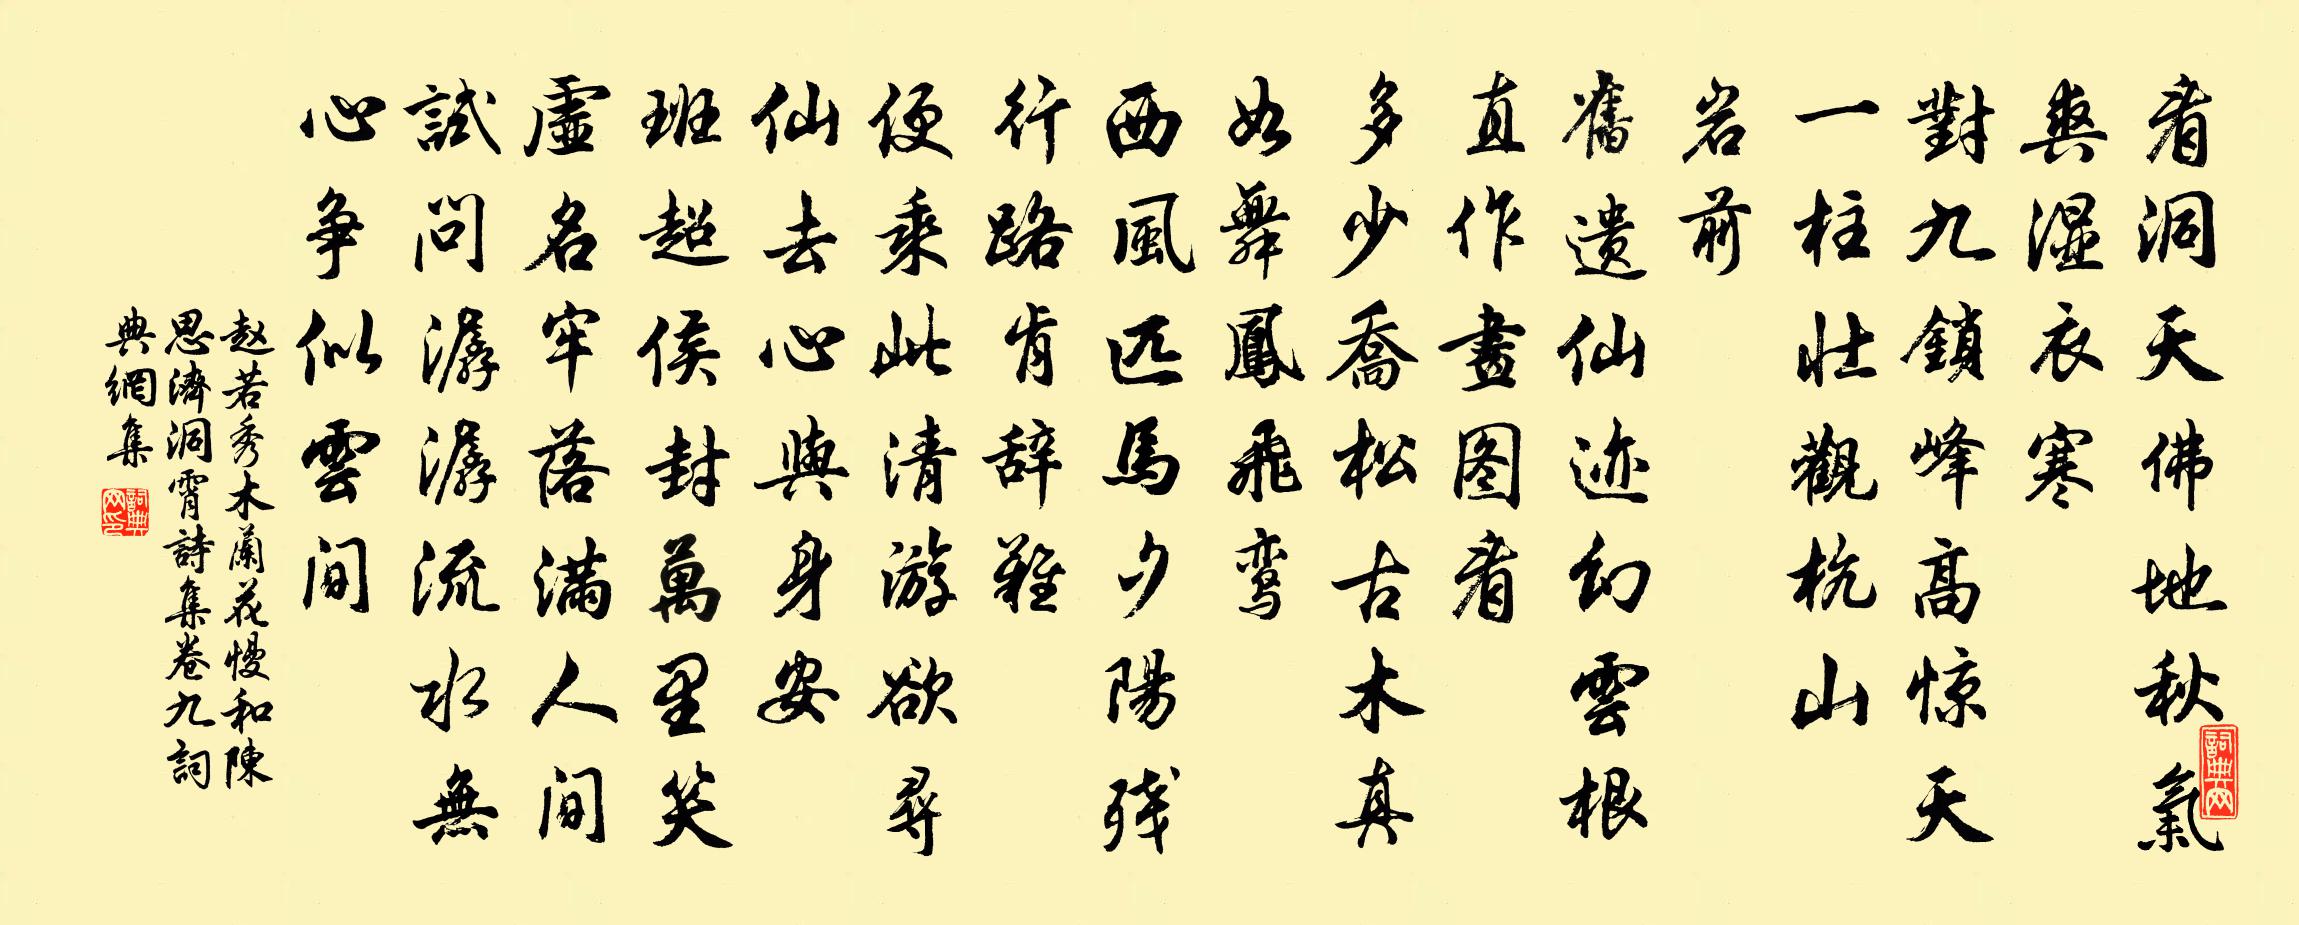 看洞天佛地秋氣
爽濕衣寒
對九鎖峰高惊天
一柱壯觀杭山
岩前
舊遗仙迹幻雲根
直作畫图看
多少喬松古木真
如舞鳳飛鸾
西風匹馬夕陽残
行路肯辞難
便乘此清游欲尋
仙去心與身安
班超侯封萬里笑
虛名牢落满人间
試问潺潺流水無
心争似雲间
赵若秀木蘭花慢和陳
思濟洞霄詩集卷九詞
典網集
詞典网
詞典网印